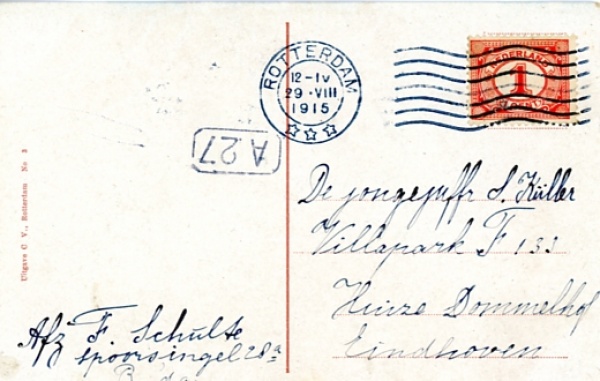 ROTTERDAM
12-IV
29.VIII
1915
NEDERLAND
1
A 27
Uitgave C V., Rotterdam No 3
De jongejuffr S. Küller
Villapark F 133
Huize Dommelhof
Eindhoven
Afz F. Schulte
Spoorsingel 28a